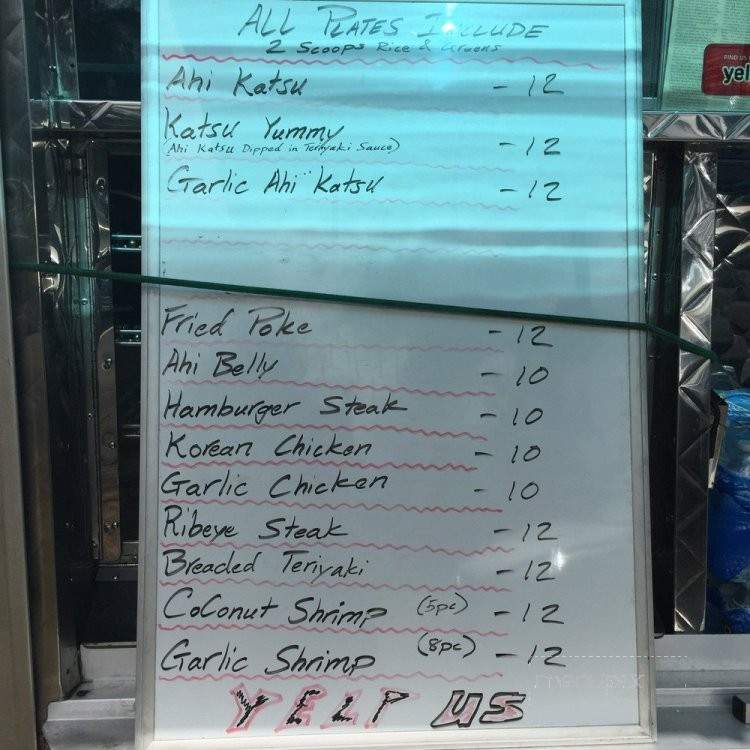 ALL PLATES INCLUDE
2 Scoops Rice & Greens
Ahi Katsu - 12
Katsu Yummy - 12
(Ahi Katsu Dipped in Teriyaki Sauce)
Garlic Ahi Katsu - 12
Fried Poke - 12
Ahi Belly - 10
Hamburger Steak - 10
Korean Chicken - 10
Garlic Chicken - 10
Ribeye Steak - 12
Breaded Teriyaki - 12
Coconut Shrimp (5pc) - 12
Garlic Shrimp (8pc) - 12
YELP US
FIND US
yel